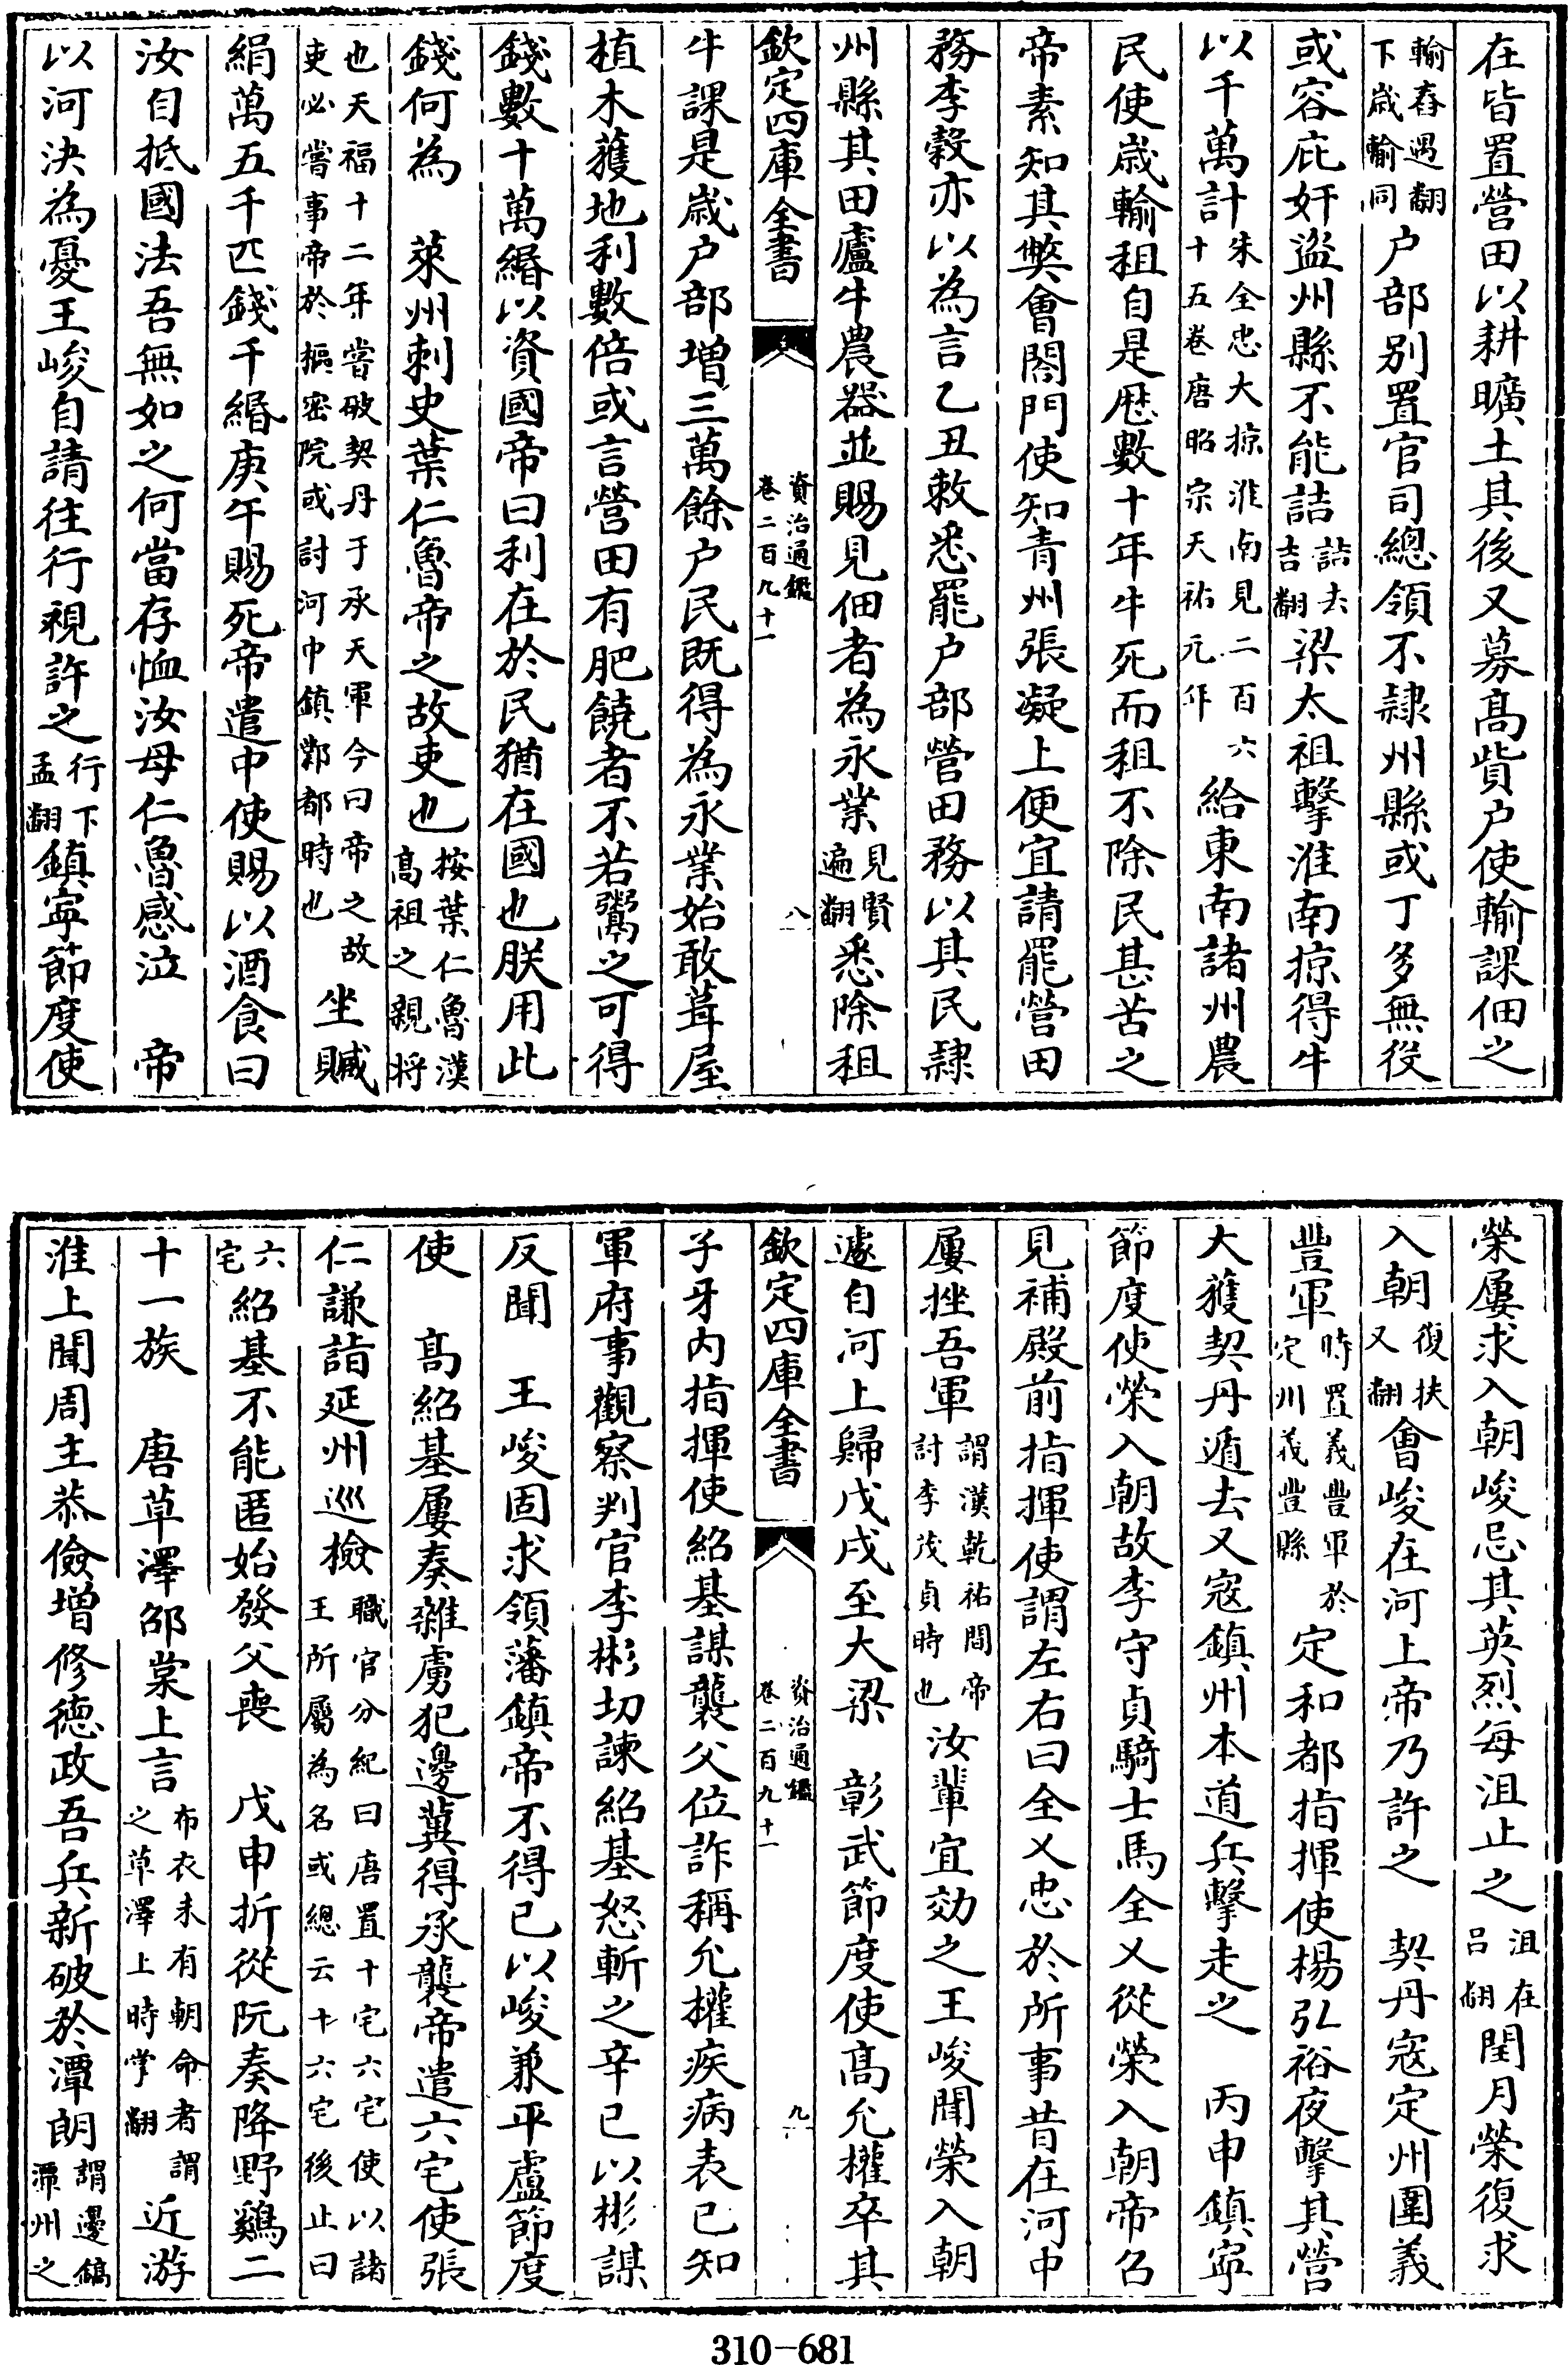 在皆置營田以耕曠土其後又募高貲户使輸課佃之
輸舂遇翻下歳輸同户部别置官司總領不隷州縣或丁多無役
或容庇奸盜州縣不能詰詰去吉翻梁太祖擊淮南掠得牛
以千萬計朱全忠大掠淮南見二百六十五卷唐昭宗天祐元年給東南諸州農
民使歳輸租自是厯數十年牛死而租不除民甚苦之
帝素知其弊會閤門使知青州張凝上便宜請罷營田
務李穀亦以為言乙丑敕悉罷户部營田務以其民隷
州縣其田廬牛農器並賜見佃者為永業見賢遍翻悉除租
欽定四庫全書 資治通鑑卷二百九十一 八
牛課是歳户部增三萬餘户民既得為永業始敢葺屋
植木蓷地利數倍或言營田有肥饒者不若鬻之可得
錢數十萬緡以資國帝曰利在於民猶在國也朕用此
錢何為 萊州刺史葉仁魯帝之故吏也按葉仁魯漢高祖之親将
也天福十二年嘗破契丹于承天軍今曰帝之故吏必嘗事帝於樞密院或討河中鎮鄴都時也坐贓
絹萬五千匹錢千緡庚午賜死帝遣中使賜以酒食曰
汝自抵國法吾無如之何當存恤汝母仁魯感泣 帝
以河決為憂王峻自請往行視許之行下孟翻鎮寧節度使
榮屢求入朝峻忌其英烈每沮止之沮在吕翻閏月榮復求
入朝復扶又翻會峻在河上帝乃許之 契丹寇定州圍義
豐軍時置義豐軍於定州義豐縣定和都指揮使楊弘裕夜擊其營
大獲契丹遁去又寇鎮州本道兵擊走之 丙申鎮寧
節度使榮入朝故李守貞騎士馬全乂從榮入朝帝召
見補殿前指揮使謂左右曰全乂忠於所事昔在河中
屢挫吾軍謂漢乾祐間帝討李茂貞時也汝輩宜効之王峻聞榮入朝
遽自河上歸戊戌至大梁 彰武節度使高允權卒其
欽定四庫全書 資治通鑑卷二百九十一 九
子牙内指揮使紹基謀襲父位詐稱允權疾病表已知
軍府事觀察判官李彬切諫紹基怒斬之辛巳以彬謀
反聞 王峻固求領藩鎮帝不得已以峻兼平盧節度
使 高紹基屢奏雜虜犯邊冀得承襲帝遣六宅使張
仁謙詣延州巡檢職官分紀曰唐置十宅六宅使以諸王所屬為名或總云十六宅後止曰
六宅紹基不能匿始發父喪 戊申折從阮奏降野雞二
十一族 唐草澤邵棠上言布衣未有朝命者謂之草澤上時掌翻近游
淮上聞周主恭儉增修德政吾兵新破於潭朗謂邊鎬潭州之
310-681